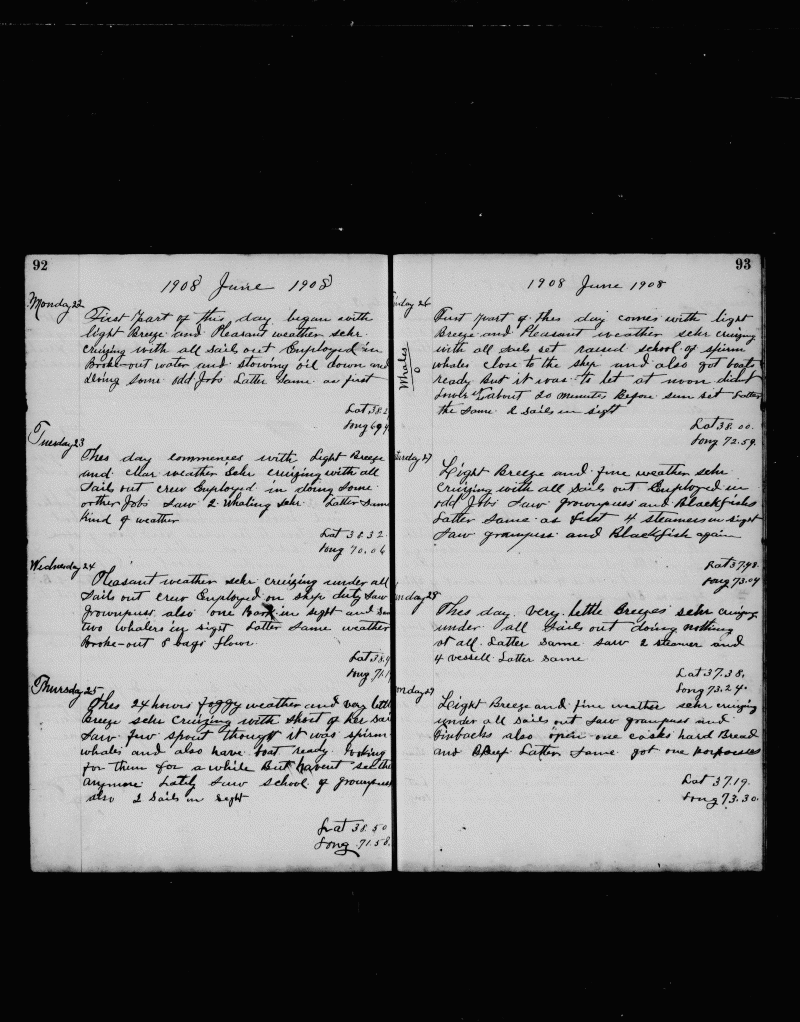 92
1908 June 1908
Monday 22
First Part of this day began with
light Breeze and Pleasant weather schr.
Cruizing with all Sails out Employed in
Broke-out water and stowing oil down and
doing some odd Jobs Latter Same as first
Lat 38.2
Long 69.4
Tuesday 23
Thes day commences with Light Breeze
and clear weather Schr cruizing with all
Sail out crew Employed in doing Some
orther Jobs Saw 2 whaling schr Latter Same
Kind of weather
Lat 38 32
Long 70.06
Wednesday 24
Pleasant weather schr cruizing under all
Sails out crew Employed on ship duty Saw
grownpuss also one Bark in sight and Saw
two whalers in sigst Latter Same weather
Broke-out 8 bags flour
Lat 38.4
Long 71.1
Thursday 25
Thes 24 hours foggy weather and very littl
Breeze schr Cruizing with short of her Sai
Saw few spout thought it was spirm
whales and also have boat ready looking
for them for a while But havent see the
anymore Lately Saw school of grownpuss
also 2 Sails in sight
Lat 38.50
Long 71.58
93
1908 June 1908
iday 26
First Part of thes day comes with light
Breeze and Pleasant weather schr cruizing
with all sails set raised school of spirm
Whales 0
whales close to the ship and also got boats
ready But it was to let at noon didnt
Lower at about 20 minutes Before sun set Latter
the Same 2 Sails in sight
Lat 38.00.
Long 72.59.
urday 27
Light Breeze and fine weather schr
Cruizing with all Sails out Employed in
odd Jobs Saw grownpuss and Blackfishs
Latter Same as First 4 steamers in sigst
Saw grampuss and Blackfish again
Lat 37.48.
Long 73.04
unday 28
Thes day very little Breeges schr cruizing
under all Sails out doing nothing
at all Latter Same saw 2 steamer and
4 vessell Latter Same
Lat 37.38.
Long 73.24.
onday 29
Light Breeze and fine weather schr cruizing
under all Sails out Saw grampuss and
Finbacks also open one casks hard Bread
and Beef Latter Same got one porpouses
Lat 37.19.
Long 73.30.